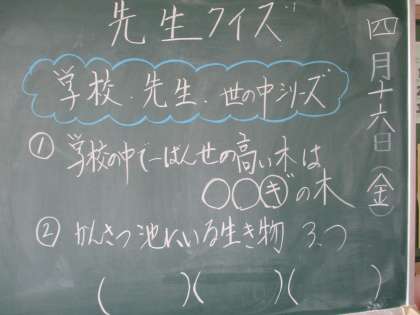 先生クイズ
四月十六日(金)
学校.先生.世の中シリーズ
① 学校の中で一ばんせの高い木は
○○ギの木
② かんさつ池にいる生き物 3つ
(　)(　)(　)